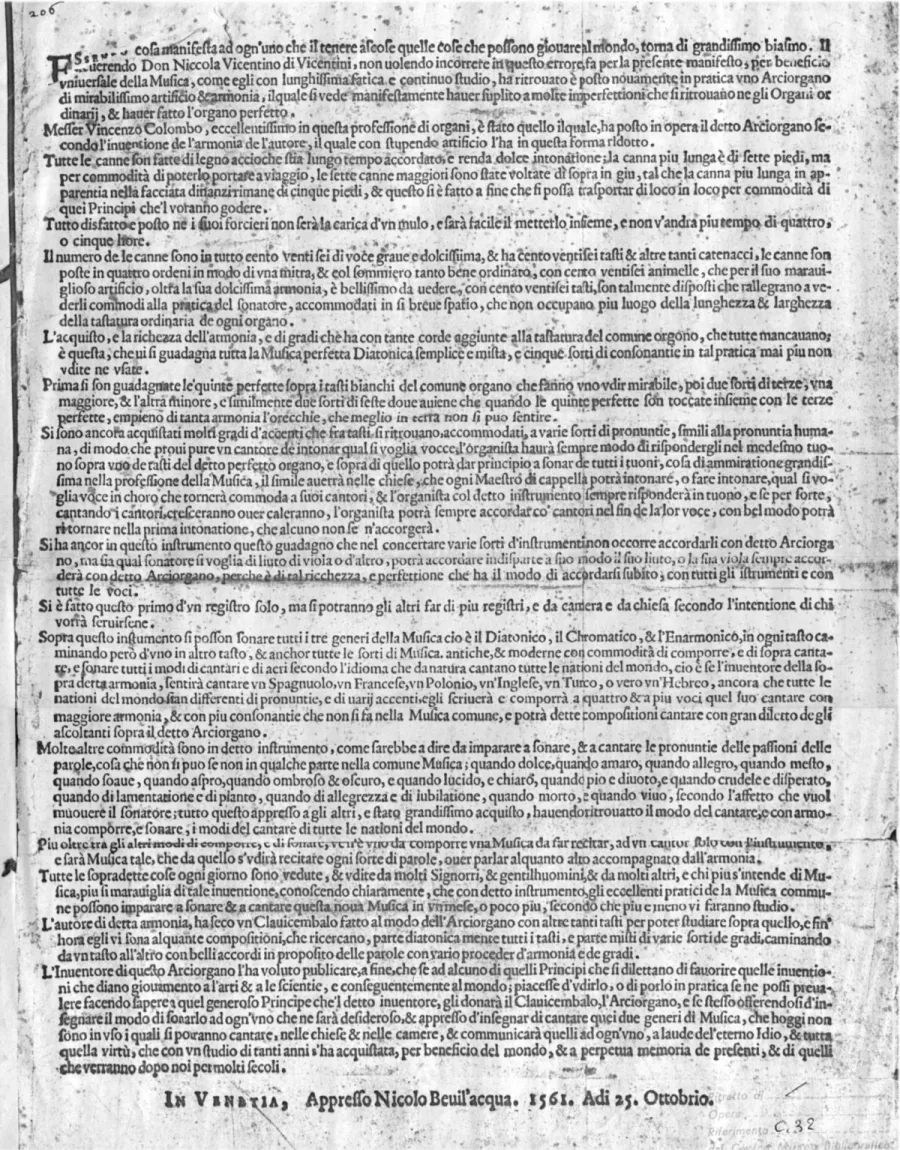 206
ESSENDO cosa manifesta ad ogn'uno che il tenere ascose quelle cose che possono giouare al mondo, torna di grandissimo biasmo. Il
Reuerendo Don Niccola Vicentino di Vicentini, non uolendo incorrere in questo errore, fa per la presente manifesto, per beneficio
vniuersale della Musica, come egli con lunghissima fatica e continuo studio, ha ritrouato è posto nouamente in pratica vno Arciorgano
di mirabilissimo artificio & armonia, ilquale si vede manifestamente hauer suplito a molte imperfettioni che si ritrouano ne gli Organi or
dinarij, & hauer fatto l'organo perfetto.
Messer Vincenzo Colombo, eccellentissimo in questa professione di organi, è stato quello ilquale, ha posto in opera il detto Arciorgano se-
condo l'inuentione de l'armonia de l'autore, il quale con stupendo artificio l'ha in questa forma ridotto.
Tutte le canne son fatte di legno accioche stia lungo tempo accordato, e renda dolce intonatione; la canna piu lunga è di sette piedi, ma
per commodità di poterlo portare a viaggio, le sette canne maggiori sono state voltate di sopra in giu, tal che la canna piu lunga in ap-
parentia nella facciata dinanzi rimane di cinque piedi, & questo si è fatto a fine che si possa trasportar di loco in loco per commodità di
quei Principi che'l voranno godere.
Tutto disfatto e posto ne i suoi forcieri non serà la carica d'vn mulo, e sarà facile il metterlo insieme, e non v'andra piu tempo di quattro,
o cinque hore.
Il numero de le canne sono in tutto cento venti sei di voce graue e dolcissima, & ha cento ventisei tasti & altre tanti catenacci, le canne son
poste in quattro ordeni in modo di vna mitra, & col sommiero tanto bene ordinato, con cento ventisei animelle, che per il suo maraui-
glioso artificio, oltra la sua dolcissima armonia, è bellissimo da uedere, con cento ventisei tasti, son talmente disposti che rallegrano a ve-
derli commodi alla pratica del sonatore, accommodati in si breue spatio, che non occupano piu luogo della lunghezza & larghezza
della tastatura ordinaria de ogni organo.
L'acquisto, e la richezza dell'armonia, e di gradi che ha con tante corde aggiunte alla tastatura del comune orgono, che tutte mancauano;
è questa, che ui si guadagna tutta la Musica perfetta Diatonica semplice e mista, e cinque sorti di consonantie in tal pratica mai piu non
vdite ne vsate.
Prima si son guadagnate le quinte perfette sopra i tasti bianchi del comune organo che fanno vno vdir mirabile, poi due sorti di terze, vna
maggiore, & l'altra minore, e similmente due sorti di seste doue auiene che quando le quinte perfette son toccate insieme con le terze
perfette, empieno di tanta armonia l'orecchie, che meglio in terra non si puo sentire.
Si sono ancora acquistati molti gradi d'accenti che fra tasti si ritrouano, accommodati, a varie sorti di pronuntie, simili alla pronuntia huma-
na, di modo, che proui pure vn cantore de intonar qual si voglia vocce, l'organista haurà sempre modo di rispondergli nel medesmo tuo-
no sopra vno de tasti del detto perfetto organo, e sopra di quello potrà dar principio a sonar de tutti i tuoni, cosa di ammiratione grandis-
sima nella professione della Musica, il simile auerrà nelle chiese, che ogni Maestro di cappella potrà intonare, o fare intonare, qual si vo-
glia voce in choro che tornerà commoda a suoi cantori, & l'organista col detto instrumento sempre risponderà in tuono, e se per sorte,
cantando i cantori, cresceranno ouer caleranno, l'organista potrà sempre accordar co' cantori nel fin de la lor voce, con bel modo potrà
ritornare nella prima intonatione, che alcuno non se n'accorgerà.
Si ha ancor in questo instrumento questo guadagno che nel concertare varie sorti d'instrumenti non occorre accordarli con detto Arciorga
no, ma sia qual sonatore si voglia di liuto di viola o d'altro, potrà accordare indisparte a suo modo il suo liuto, o la sua viola sempre accor-
derà con detto Arciorgano, perche è di tal ricchezza, e perfettione che ha il modo di accordarsi subito, con tutti gli istrumenti e con
tutte le voci.
Si è fatto questo primo d'vn registro solo, ma si potranno gli altri far di piu registri, e da camera e da chiesa secondo l'intentione di chi
vorrà seruirsene.
Sopra questo instumento si posson sonare tutti i tre generi della Musica cio è il Diatonico, il Chromatico, & l'Enarmonico, in ogni tasto ca-
minando però d'vno in altro tasto, & anchor tutte le sorti di Musica. antiche, & moderne con commodità di comporre, e di sopra canta-
re, e sonare tutti i modi di cantari e di aeri secondo l'idioma che da natura cantano tutte le nationi del mondo, cio è se l'inuentore della so-
pra detta armonia, sentirà cantare vn Spagnuolo, vn Francese, vn Polonio, vn'Inglese, vn Turco, o vero vn'Hebreo, ancora che tutte le
nationi del mondo sian differenti di pronuntie, e di uarij accenti, egli scriuerà e comporrà a quattro & a piu voci quel suo cantare con
maggiore armonia, & con piu consonantie che non si fa nella Musica comune, e potrà dette compositioni cantare con gran diletto de gli
ascoltanti sopra il detto Arciorgano.
Molto altre commodità sono in detto instrumento, come sarebbe a dire da imparare a sonare, & a cantare le pronuntie delle passioni delle
parole, cosa che non si puo se non in qualche parte nella comune Musica; quando dolce, quando amaro, quando allegro, quando mesto,
quando soaue, quando aspro, quando ombroso & oscuro, e quando lucido, e chiaro, quando pio e diuoto, e quando crudele e disperato,
quando di lamentatione e di pianto, quando di allegrezza e di iubilatione, quando morto, e quando viuo, secondo l'affetto che vuol
muouere il sonatore; tutto questo appresso a gli altri, e stato grandissimo acquisto, hauendo ritrouatto il modo del cantare, e con armo-
nia comporre, e sonare, i modi del cantare di tutte le nationi del mondo.
Piu oltre tra gli altri modi di comporre, e di sonare, ven'è vno da comporre vna Musica da far recitar, ad vn cantor solo con l'instrumento,
e sarà Musica tale, che da quello s'vdirà recitare ogni sorte di parole, ouer parlar alquanto alto accompagnato dall'armonia.
Tutte le sopradette cose ogni giorno sono vedute, & vdite da molti Signorri, & gentilhuomini, & da molti altri, e chi piu s'intende di Mu-
sica, piu si marauiglia di tale inuentione, conoscendo chiaramente, che con detto instrumento, gli eccellenti pratici de la Musica commu-
ne possono imparare a sonare & a cantare questa noua Musica in vn mese, o poco piu, secondo che piu e meno vi faranno studio.
L'autore di detta armonia, ha seco vn Clauicembalo fatto al modo dell'Arciorgano con altre tanti tasti per poter studiare sopra quello, e fin'
hora egli vi sona alquante compositioni, che ricercano, parte diatonica mente tutti i tasti, e parte misti di varie sorti de gradi, caminando
da vn tasto all'altro con belli accordi in proposito delle parole con vario proceder d'armonia e de gradi.
L'Inuentore di questo Arciorgano l'ha voluto publicare, a fine, che se ad alcuno di quelli Principi che si dilettano di fauorire quelle inuentio-
ni che diano giouamento a l'arti & a le scientie, e conseguentemente al mondo; piacesse d'vdirlo, o di porlo in pratica se ne possi preua-
lere facendo sapere a quel generoso Principe che'l detto inuentore, gli donarà il Clauicembalo, l'Arciorgano, e se stesso offerendosi d'in-
segnare il modo di sonarlo ad ogn'vno che ne sarà desideroso, & appresso d'insegnar di cantare quei due generi di Musica, che hoggi non
sono in vso i quali si potranno cantare, nelle chiese & nelle camere, & communicarà quelli ad ogn'vno, a laude de l'eterno Idio, & tutta
quella virtù, che con vn studio di tanti anni s'ha acquistata, per beneficio del mondo, & a perpetua memoria de presenti, & di quelli
che verranno dopo noi per molti secoli.
IN VENETIA, Appresso Nicolo Beuil'acqua. 1561. Adi 25. Ottobrio.
Ritratto di
Opera
Riferimento C.32